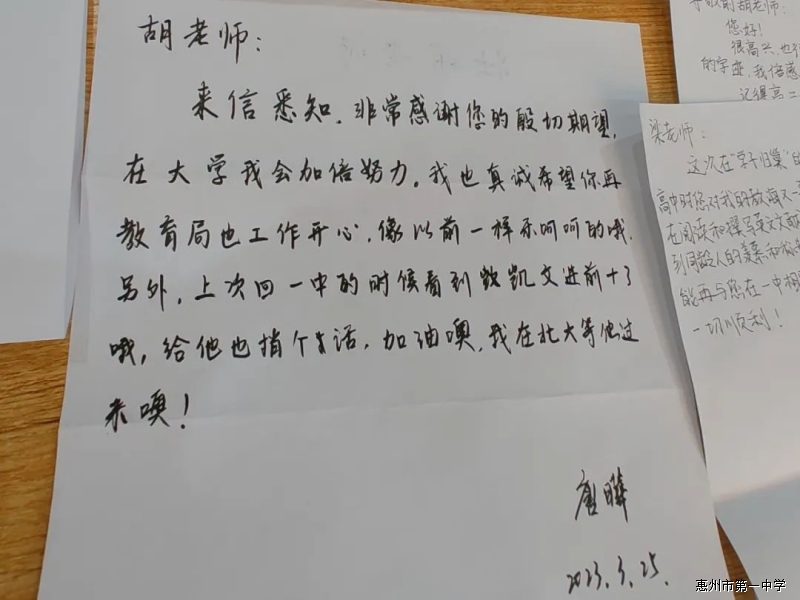 胡老师：
来信悉知，非常感谢您的殷切期望，
在大学我会加倍努力。我也真诚希望你再
教育局也工作开心，像以前一样乐呵呵的哦。
另外，上次回一中的时候看到凯文进前十了
哦，给他也捎个话，加油噢，我在北大等他过
来噢！
唐晔
2023.3.25.
您好！
很高兴，也
的字迹，我倍感
记得高二
梁老师：
这次在“学子归巢”的
高中时您对我的教诲
在阅读和撰写英文文献
到同龄人的羡慕和
能再与您在一中相
一切顺利！
惠州市第一中学